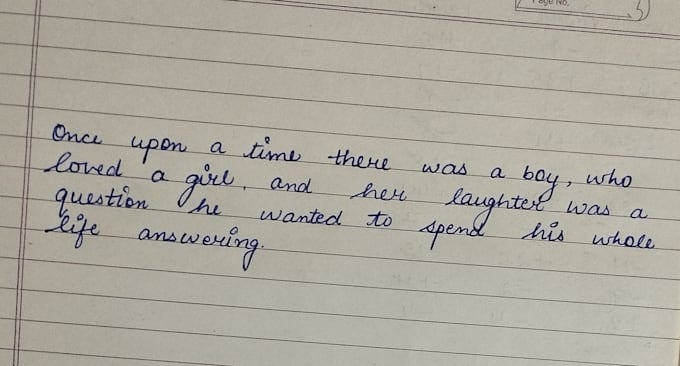 Page No.
Once upon a time there was a boy, who
loved a girl, and her laughter was a
question he wanted to spend his whole
life answering.